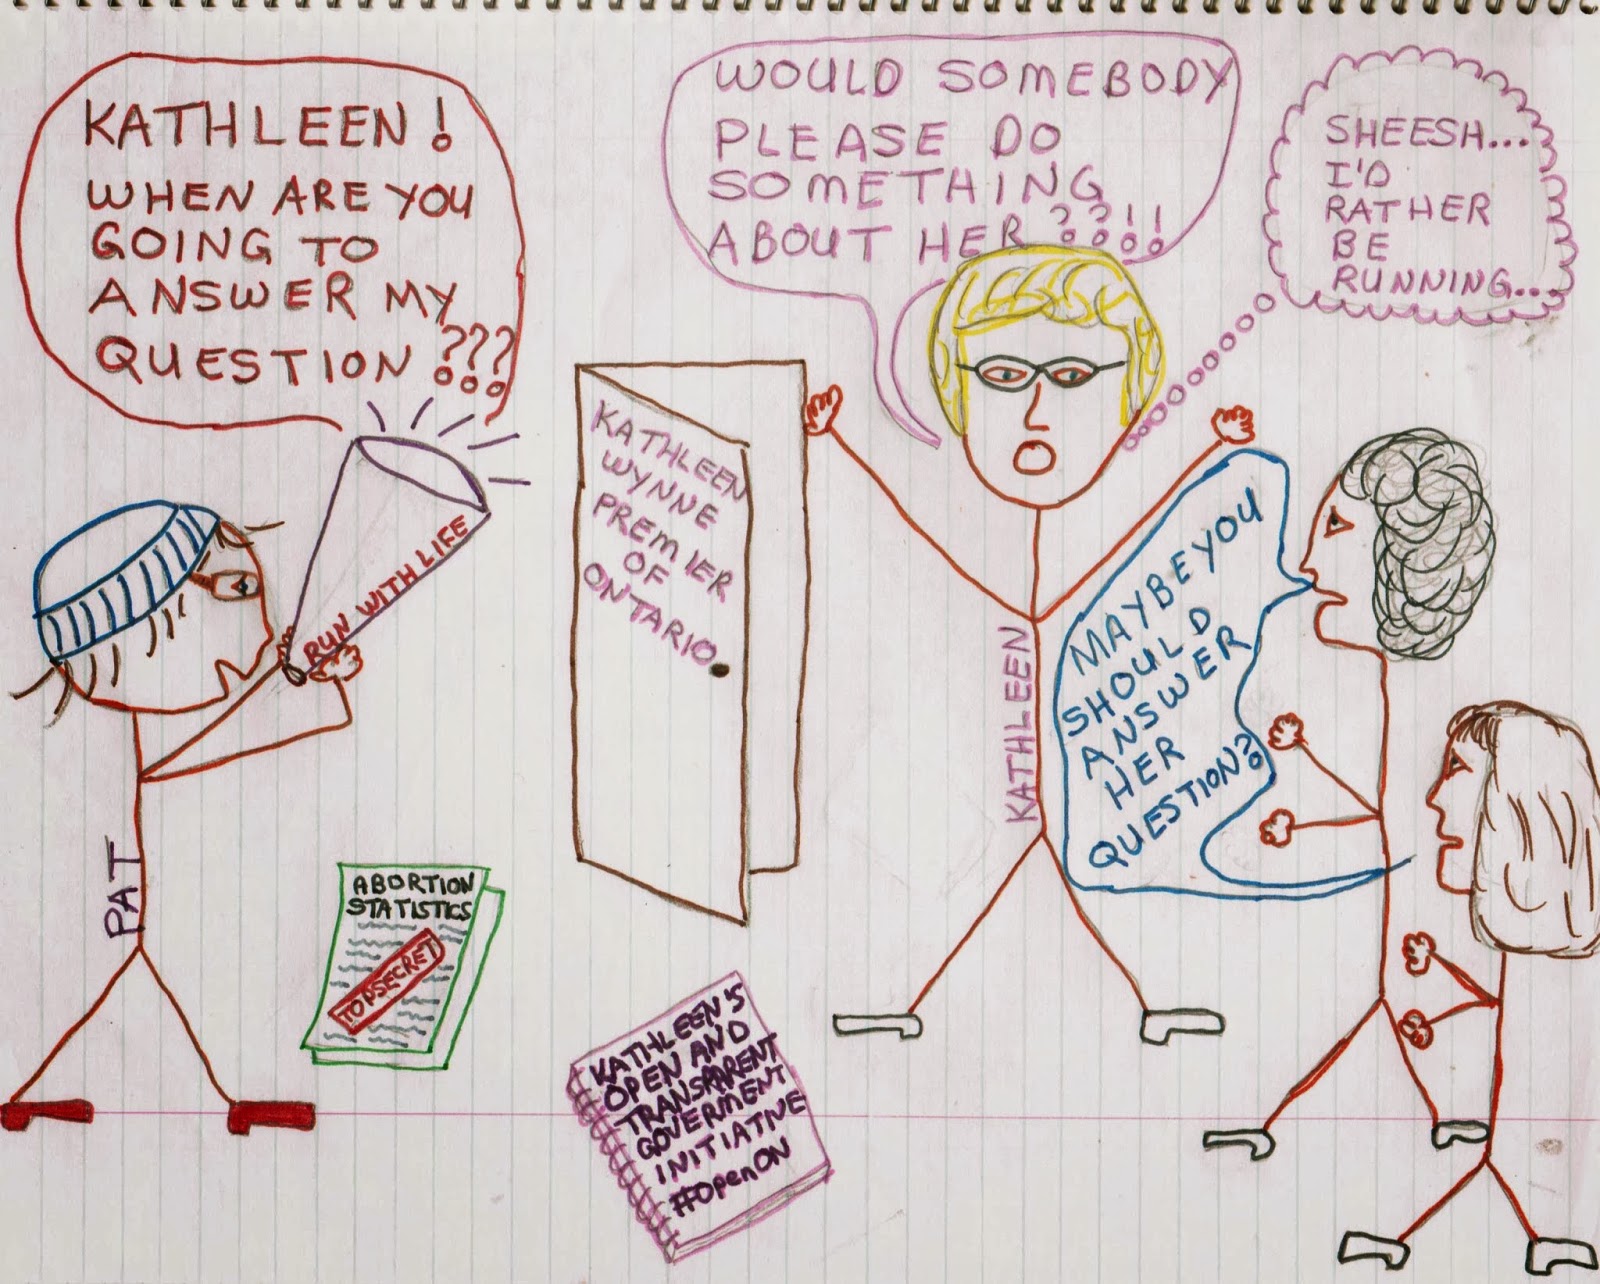 KATHLEEN!
WHEN ARE YOU
GOING TO
ANSWER MY
QUESTION ???
WOULD SOMEBODY
PLEASE DO
SOMETHING
ABOUT HER ??!!
SHEESH...
I'D
RATHER
BE
RUNNING...
RUN WITH LIFE
KATHLEEN
WYNNE
PREMIER
OF
ONTARIO
MAYBE YOU
SHOULD
ANSWER
HER
QUESTION?
KATHLEEN
PAT
ABORTION
STATISTICS
TOP SECRET
KATHLEEN'S
OPEN AND
TRANSPARENT
GOVERMENT
INITIATIVE
#OpenON